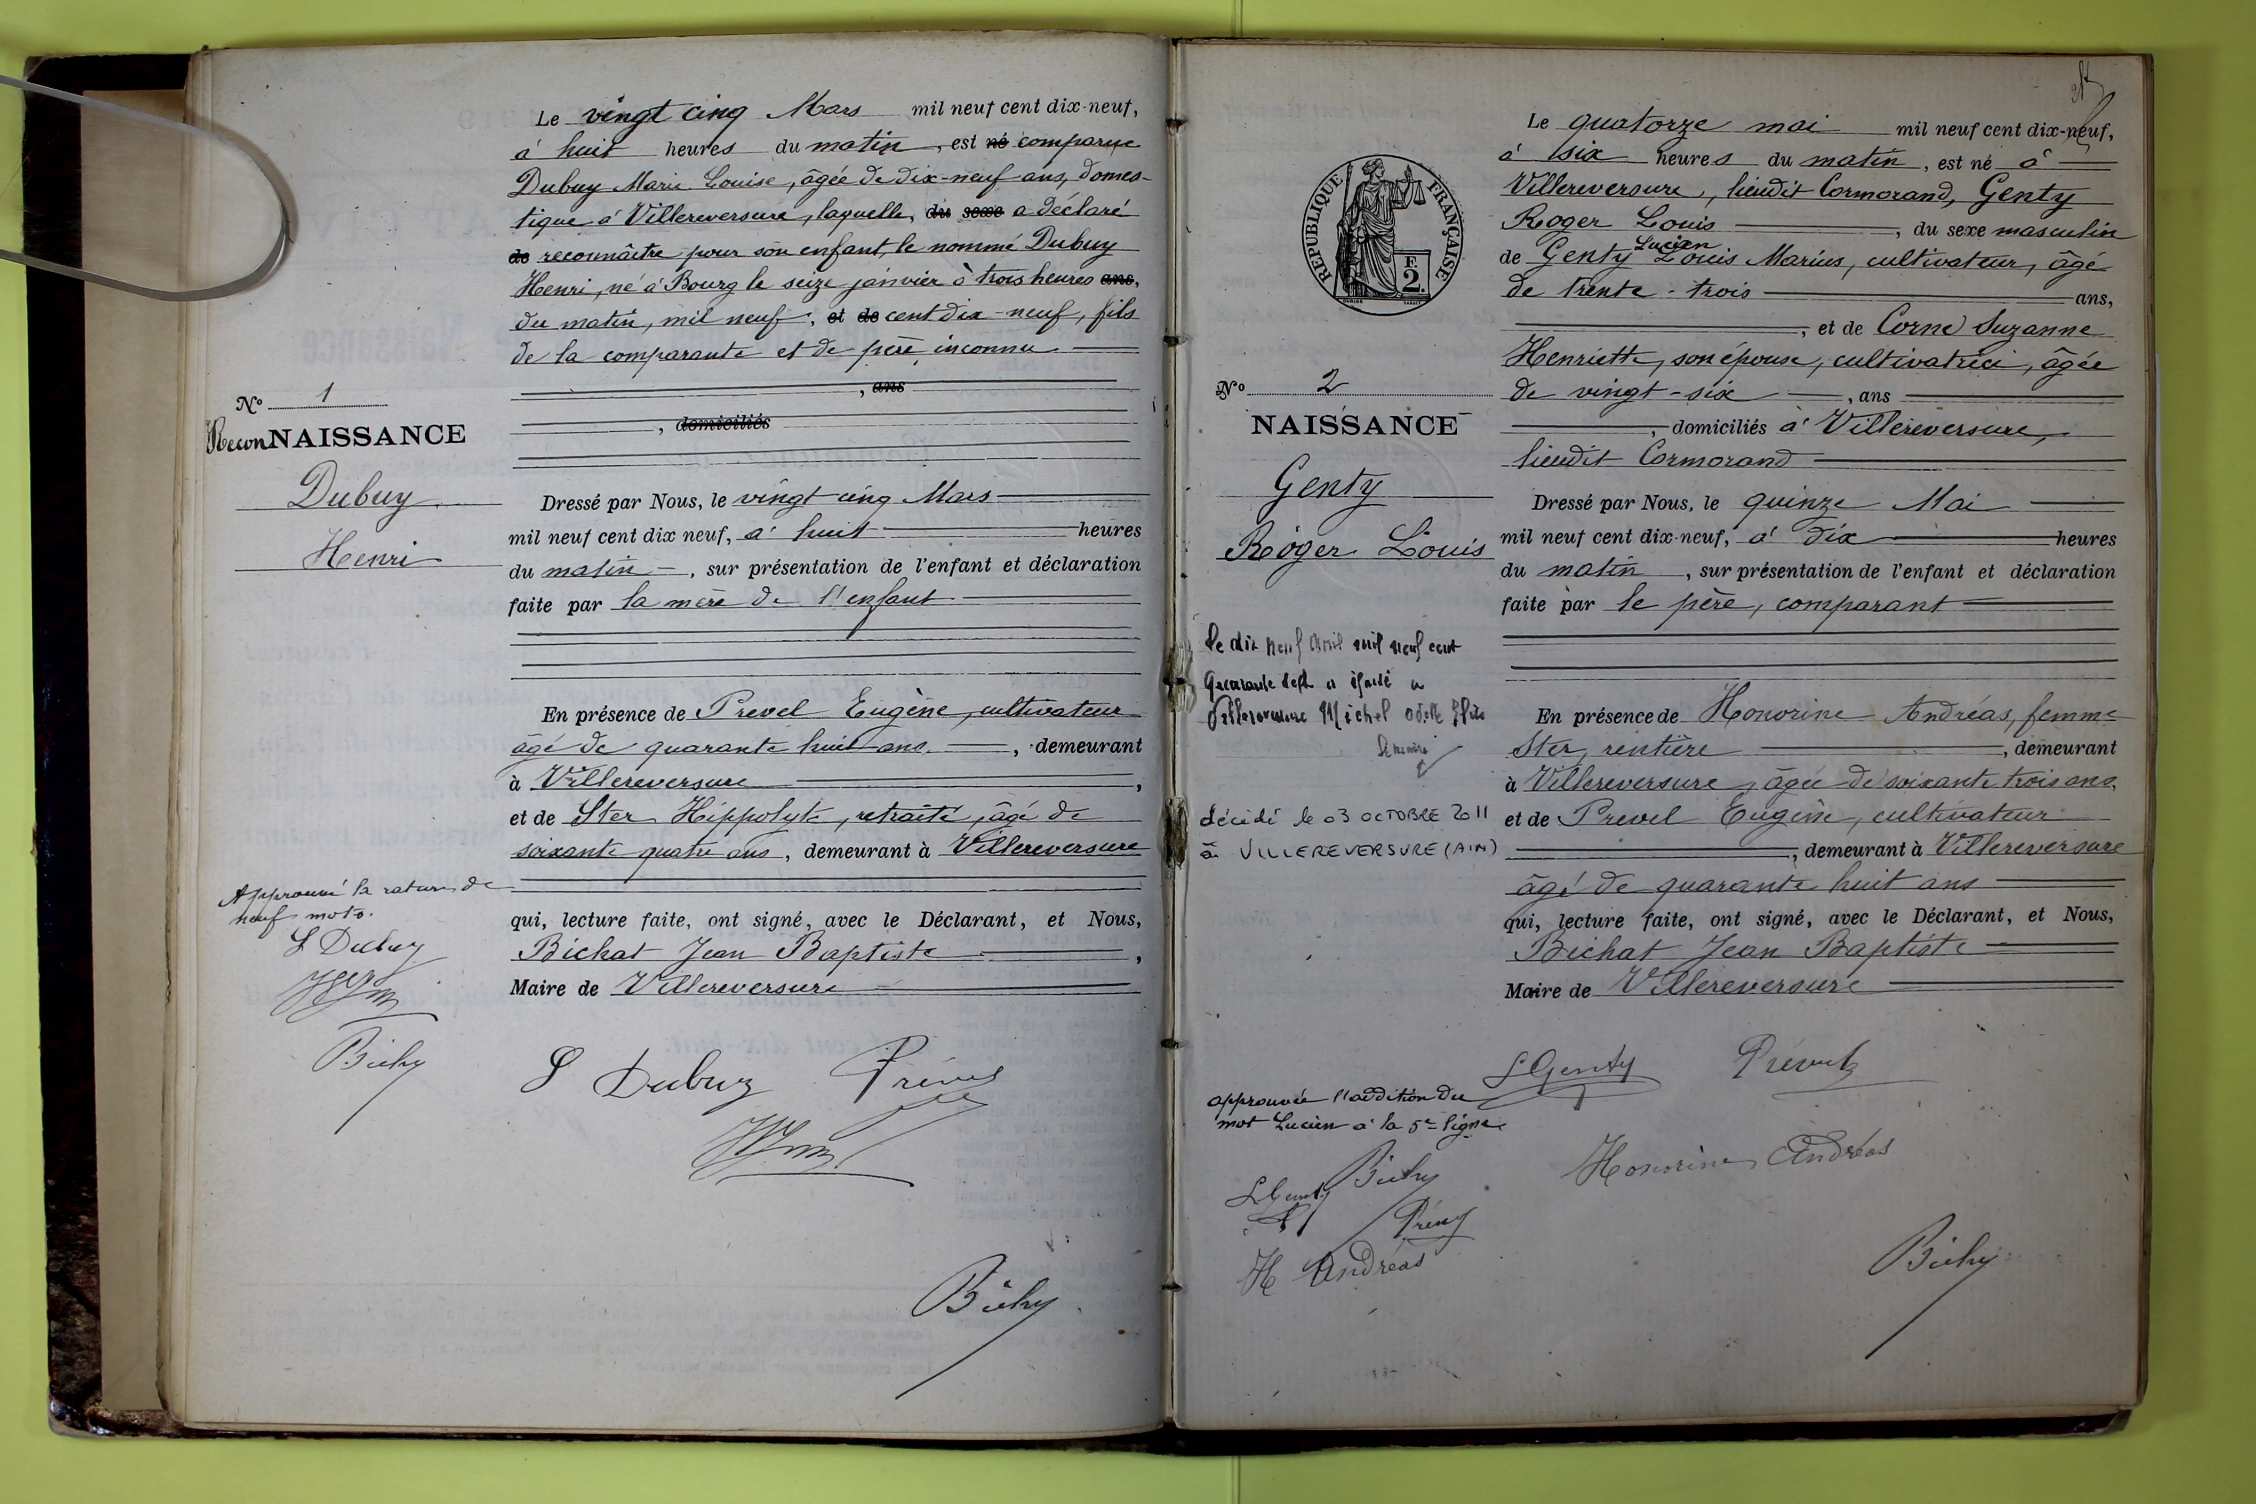 Le vingt cinq Mars mil neuf cent dix-neuf,
à huit heures du matin, est né comparue
Dubuy Marie Louise, âgée de dix-neuf ans, domes-
tique à Villereversure, laquelle, du sexe a déclaré
de reconnaître pour son enfant, le nommé Dubuy
Henri, né à Bourg le seize janvier à trois heures ans,
du matin, mil neuf, et de cent dix-neuf, fils
de la comparante et de père inconnu
, ans
, domiciliés
No 1
ReconNAISSANCE
Dubuy
Henri
Dressé par Nous, le vingt cinq Mars
mil neuf cent dix neuf, à huit heures
du matin, sur présentation de l'enfant et déclaration
faite par la mère de l'enfant
En présence de Prevel Eugène, cultivateur
âgé de quarante huit ans, demeurant
à Villereversure,
et de Ster Hippolyte, retraité, âgé de
soixante quatre ans, demeurant à Villereversure
qui, lecture faite, ont signé, avec le Déclarant, et Nous,
Bichat Jean Baptiste,
Maire de Villereversure
Approuvé la rature de
neuf mots.
L Dubuy
L Dubuy
Le quatorze mai mil neuf cent dix-neuf,
à six heures du matin, est né à
Villereversure, lieudit Cormorand, Genty
Roger Louis, du sexe masculin
Lucien
de Genty Louis Marius, cultivateur, âgé
de trente-trois ans,
, et de Corne Suzanne
Henriette, son épouse, cultivatrice, âgée
de vingt-six, ans
, domiciliés à Villereversure,
lieudit Cormorand
RÉPUBLIQUE FRANÇAISE
F.
2.
No 2
NAISSANCE
Genty
Roger Louis
Dressé par Nous, le quinze Mai
mil neuf cent dix-neuf, à dix heures
du matin, sur présentation de l'enfant et déclaration
faite par le père, comparant
Le dix neuf avril mil neuf cent
quarante sept a épousé à
Villereversure Michel Odette
Le maire
décédé le 03 OCTOBRE 2011
à VILLEREVERSURE (AIN)
En présence de Honorine Andréas, femme
Ster, rentière, demeurant
à Villereversure, âgée de soixante trois ans,
et de Prevel Eugène, cultivateur
, demeurant à Villereversure
âgé de quarante huit ans
qui, lecture faite, ont signé, avec le Déclarant, et Nous,
Bichat Jean Baptiste
Maire de Villereversure
approuvée l'addition du
mot Lucien à la 5e ligne
L Genty
Honorine Andréas
L Genty
H Andréas